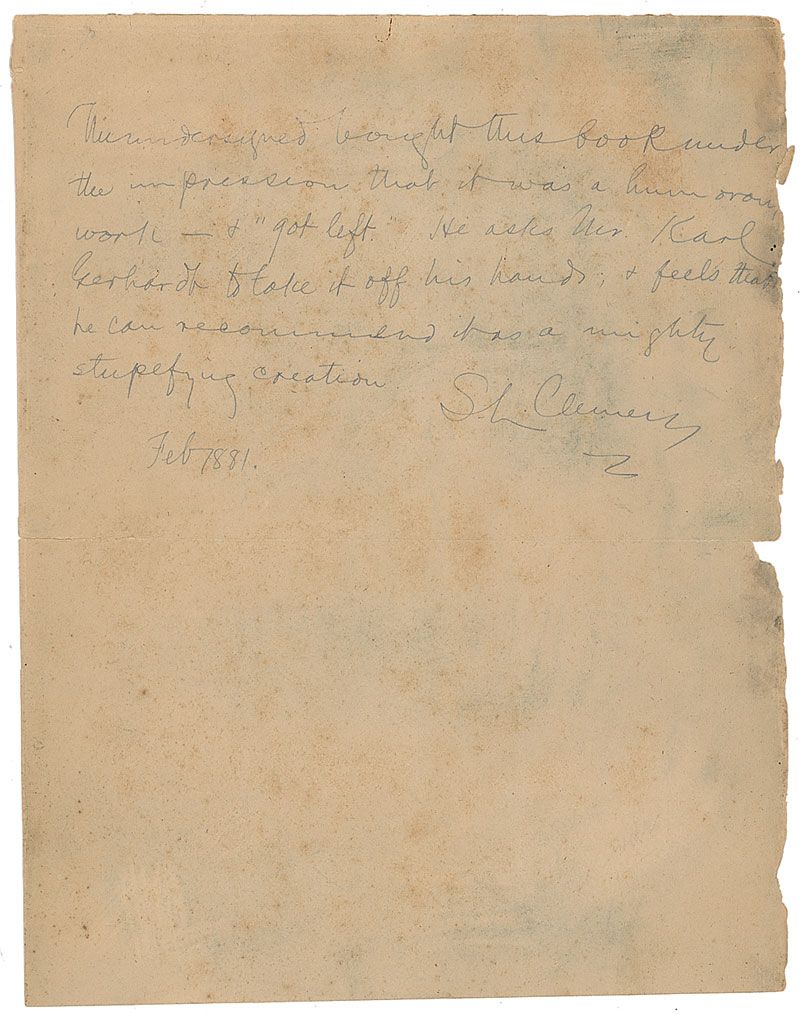 The undersigned bought this book under
the impression that it was a humorous
work — & "got left." He asks Mr. Karl
Gerhardt to take it off his hands, & feels that
he can recommend it as a mighty
stupefying creation.
S L Clemens
Feb 1881.